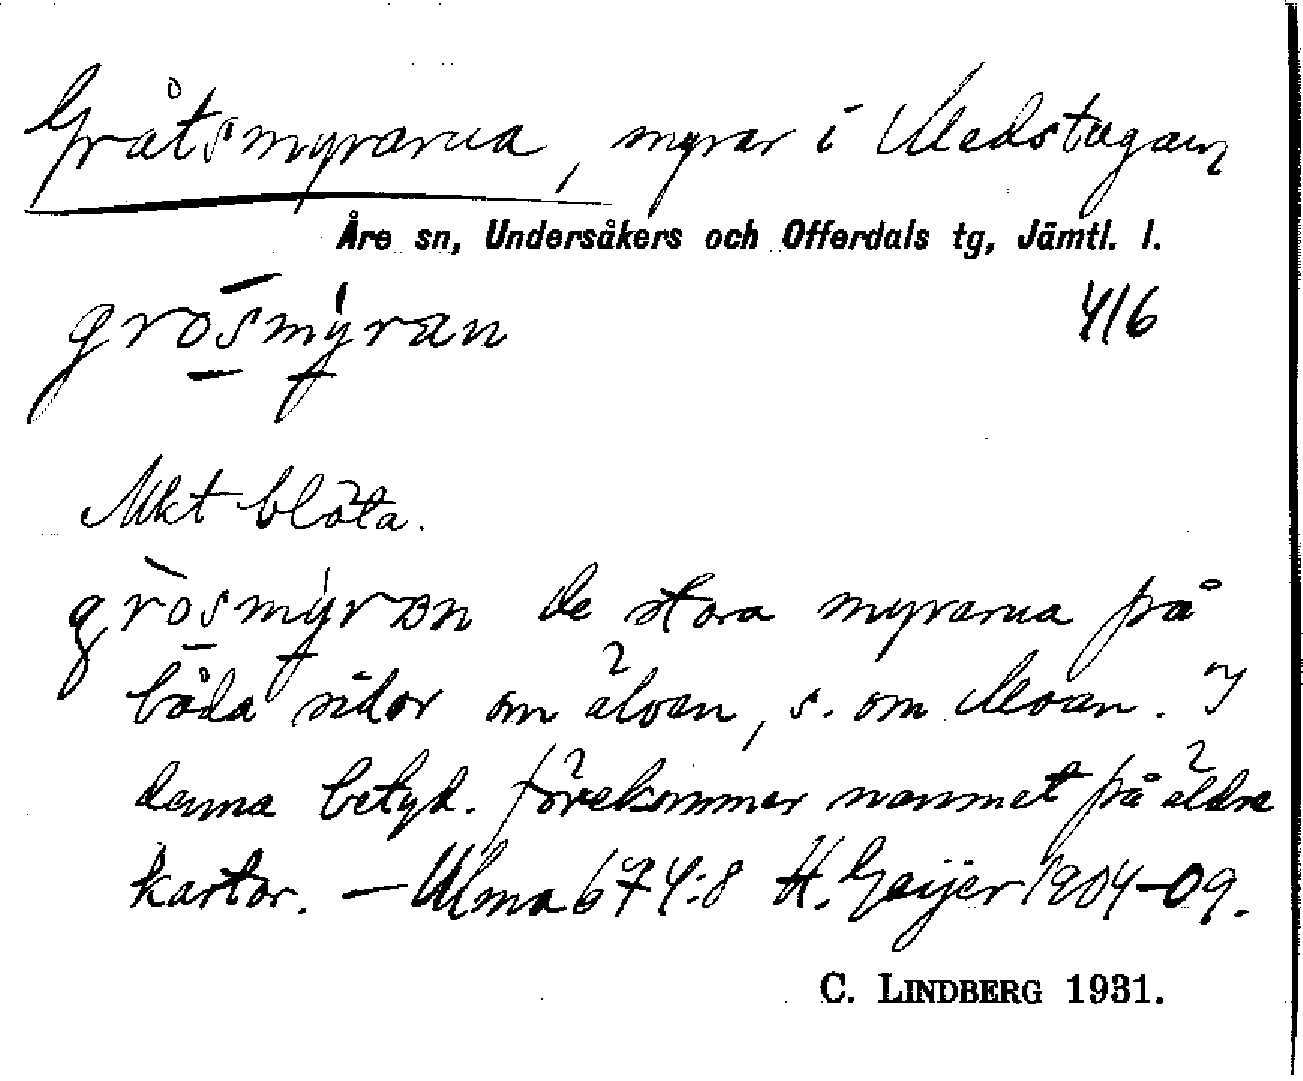 Gråtsmyrarna, myrar i Medstugan
Åre sn, Undersåkers och Offerdals tg, Jämtl. l.
grosmyran 4/6
Mkt blöta.
grosmyran de stora myrarna på
båda sidor om älven, s. om Moan. I
denna betyd. förekommer namnet på äldre
kartor. — Ulma 674:8 H. Geijer 1904-09.
C. LINDBERG 1931.